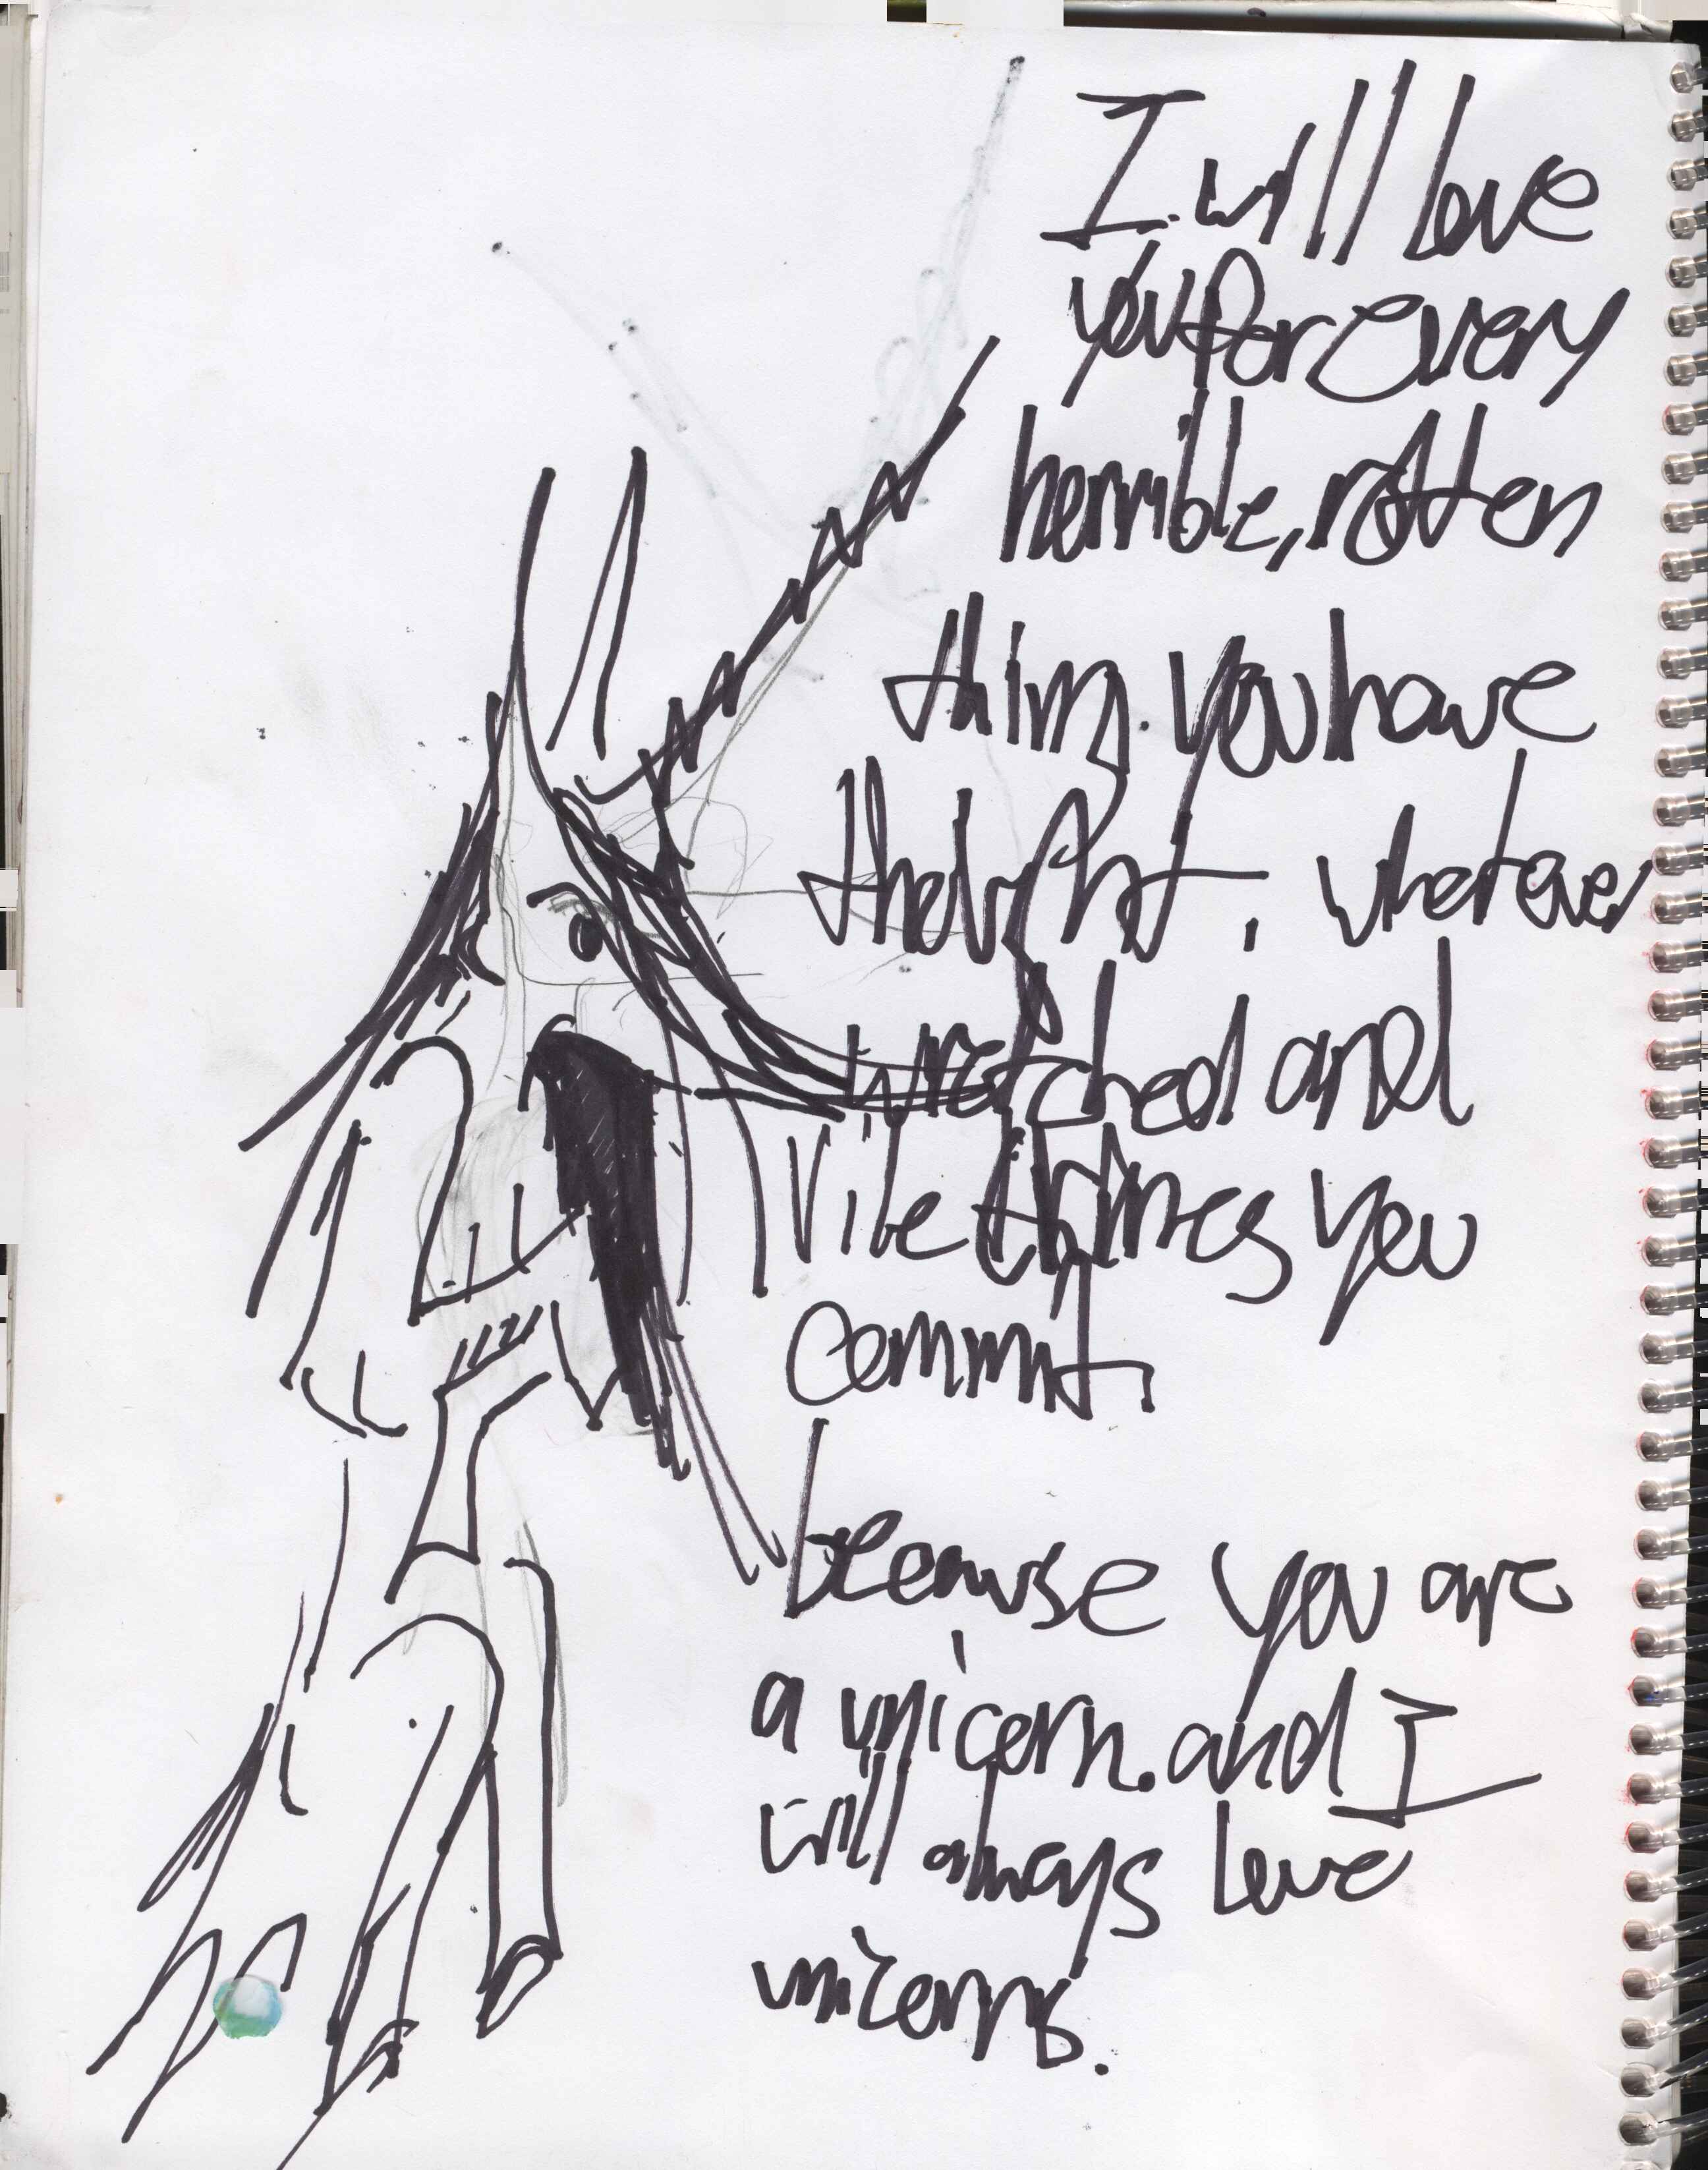 I will love
you for every
horrible, rotten
thing you have
thought, whatever
wretched and
vile things you
commit,
because you are
a unicorn. and I
will always love
unicorns.